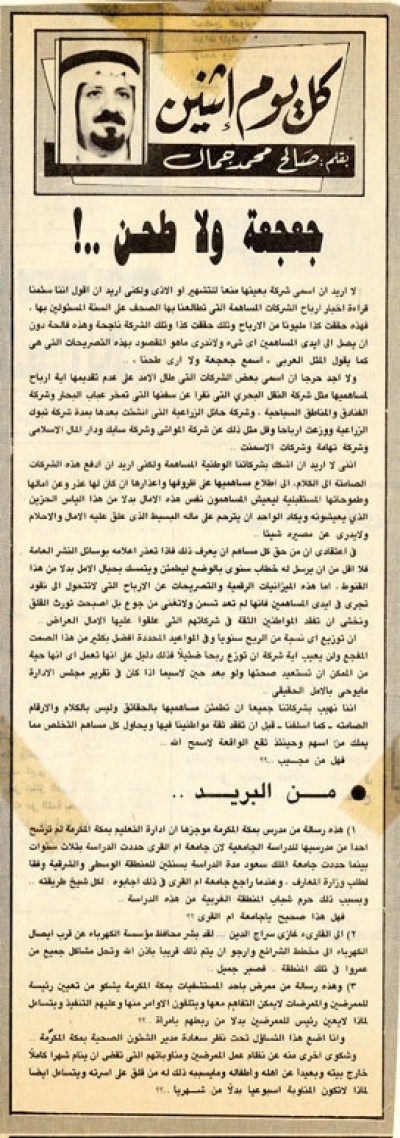 كل يوم إثنين
بقلم : صالح محمد جمال
جعجعة ولا طحن ..!
لا اريد ان اسمى شركة بعينها منعاً للتشهير او الاذى ولكنى اريد ان اقول اننا سئمنا
قراءة اخبار ارباح الشركات المساهمة التى تطالعنا بها الصحف على السنة المسئولين بها ،
فهذه حققت كذا مليونا من الارباح وتلك حققت كذا وتلك الشركة ناجحة وهذه فالحة دون
ان يصل الى ايدى المساهمين اى شىء ولاندرى ماهو المقصود بهذه التصريحات التى هى
كما يقول المثل العربى ، اسمع جعجعة ولا ارى طحنا ..
ولا اجد حرجا ان اسمى بعض الشركات التى طال الامد على عدم تقديمها اية ارباح
لمساهميها مثل شركة النقل البحري التى نقرا عن سفنها التى تمخر عباب البحار وشركة
الفنادق والمناطق السياحية ، وشركة حائل الزراعية التى انشئت بعدها بمدة شركة تبوك
الزراعية ووزعت ارباحا وقل مثل ذلك عن شركة المواشى وشركة سابك ودار المال الاسلامى
وشركة تهامة وشركات الاسمنت ..
اننى لا اريد ان اشكك بشركاتنا الوطنية المساهمة ولكنى اريد ان ادفع هذه الشركات
الصامتة الى الكلام، الى اطلاع مساهميها على ظروفها واعذارها ان كان لها عذر وعن امالها
وطموحاتها المستقبلية ليعيش المساهمون نفس هذه الامال بدلا من هذا الياس الحزين
الذي يعيشونه ويكاد الواحد ان يترحم على ماله البسيط الذى علق عليه الامال والاحلام
ولايدرى عن مصيره شيئا ..
فى اعتقادى ان من حق كل مساهم ان يعرف ذلك فاذا تعذر اعلامه بوسائل النشر العامة
فلا اقل من ان يرسل له خطاب سنوى بالوضع ليطمئن ويتمسك بحبال الامل بدلا من هذا
القنوط ، اما هذه الميزانيات الرقمية والتصريحات عن الارباح التى لاتتحول الى نقود
تجرى فى ايدى المساهمين فانها لم تعد تسمن ولاتغنى من جوع بل اصبحت تورث القلق
ونخشى ان تفقد المواطنين الثقة فى شركاتهم التى علقوا عليها الامال العراض ..
ان توزيع اى نسبة من الربح سنويا وفى المواعيد المحددة افضل بكثير من هذا الصمت
المفجع ولن يعيب اية شركة ان توزع ربحا ضئيلاً فذلك دليل على انها تعمل اى انها حية
من الممكن ان تستعيد صحتها ولو بعد حين لاسيما اذا كان فى تقرير مجلس الادارة
مايوحى بالامل الحقيقى ..
اننا نهيب بشركاتنا جميعا ان تطمئن مساهميها بالحقائق وليس بالكلام والارقام
الصامته ـ كما اسلفنا ـ قبل ان تفقد ثقة مواطنينا فيها ويحاول كل مساهم التخلص مما
يملك من اسهم وحينئذ تقع الواقعة لاسمح الله ..
فهل من مجيب ..؟؟
● من البريد ..
١) هذه رسالة من مدرس بمكة المكرمة موجزها ان ادارة التعليم بمكة المكرمة لم ترشح
احدا من مدرسيها للدراسة الجامعية لان جامعة ام القرى حددت الدراسة بثلاث سنوات
بينما حددت جامعة الملك سعود مدة الدراسة بسنتين للمنطقة الوسطى والشرقية وفقا
لطلب وزارة المعارف ، وعندما راجع جامعة ام القرى فى ذلك اجابوه : لكل شيخ طريقته ..
وبسبب ذلك حرم شباب المنطقة الغربية من هذه الدراسة ..
فهل هذا صحيح ياجامعة ام القرى ؟؟
٢) الى القارىء غازى سراج الدين .... لقد بشر محافظ مؤسسة الكهرباء عن قرب ايصال
الكهرباء الى مخطط الشرائع وارجو ان يتم ذلك قريبا باذن الله وتحل مشاكل جميع من
عمروا فى تلك المنطقة .. فصبر جميل ..
٣) وهذه رسالة من ممرض باحد المستشفيات بمكة المكرمة يشكو من تعيين رئيسة
للممرضين والممرضات لايمكن التفاهم معها ويتلقون الاوامر منها وعليهم التنفيذ ويتساءل
لماذا لايعين رئيس للممرضين بدلا من ربطهم بامراة ..؟؟
وانا اضع هذا التساؤل تحت نظر سعادة مدير الشئون الصحية بمكة المكرمة ..
وشكوى اخرى منه عن نظام عمل الممرضين ومناوباتهم التى تقضى ان ينام شهرا كاملاً
خارج بيته وبعيدا عن اهله واطفاله ومايسببه ذلك له من قلق على اسرته ويتساءل ايضا
لماذا لاتكون المناوبة اسبوعيا بدلاً من شهريا ..؟؟